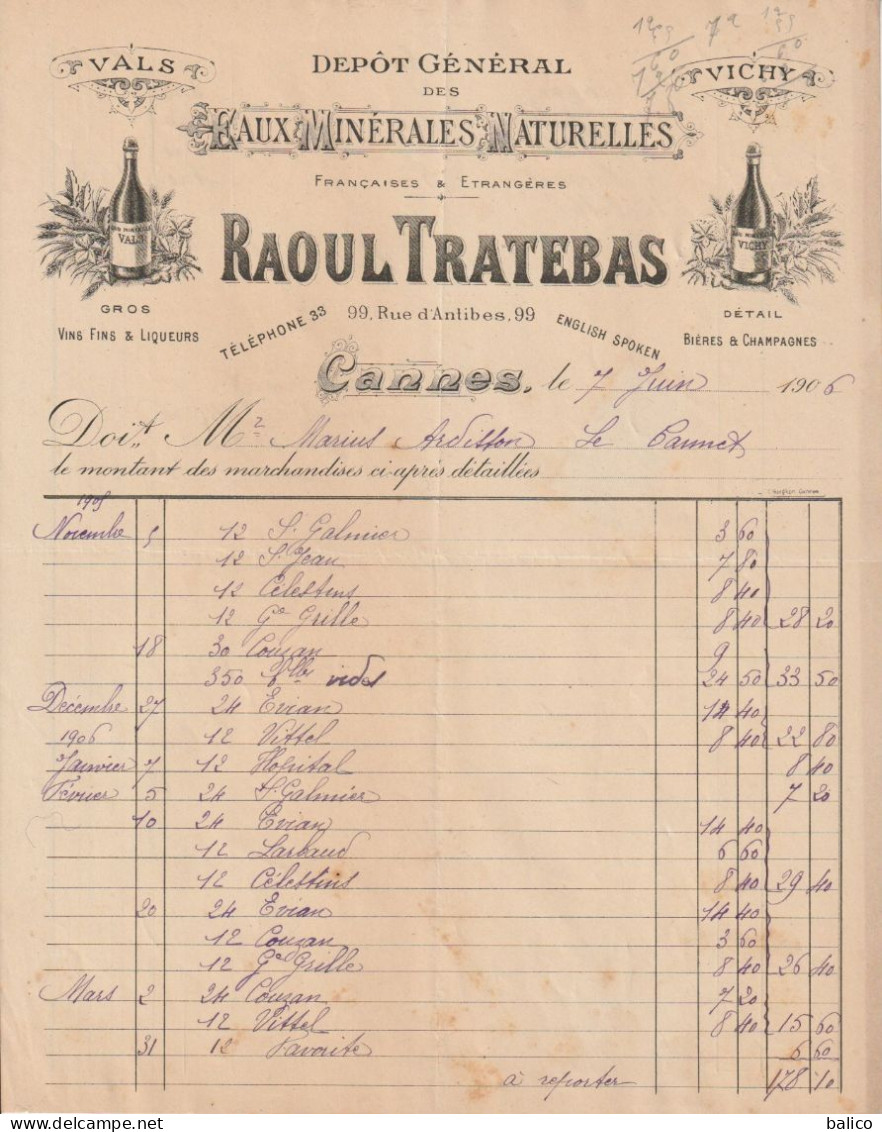 VALS
VICHY
DEPÔT GÉNÉRAL
DES
EAUX MINÉRALES NATURELLES
FRANÇAISES & ETRANGÉRES
RAOUL TRATEBAS
VALS
VICHY
GROS
VINS FINS & LIQUEURS
TÉLÉPHONE 33
99, Rue d'Antibes, 99
ENGLISH SPOKEN
DÉTAIL
BIÈRES & CHAMPAGNES
Cannes, le 7 Juin 1906
Doit Mr Marius Ardisson Le Cannet
le montant des marchandises ci-après détaillées
1905
Novembre 5 12 St Galmier 3 60
12 St Jean 7 80
12 Célestins 8 40
12 Gde Grille 8 40 28 20
18 30 Couzan 9
350 Blles vides 24 50 33 50
Décembre 27 24 Evian 14 40
1906 12 Vittel 8 40 22 80
Janvier 7 12 Hopital 8 40
Février 5 24 St Galmier 7 20
10 24 Evian 14 40
12 Larbaud 6 60
12 Célestins 8 40 29 40
20 24 Evian 14 40
12 Couzan 3 60
12 Gde Grille 8 40 26 40
Mars 2 24 Couzan 7 20
12 Vittel 8 40 15 60
31 12 Favorite 6 60
à reporter 178 10
delcampe.net
balico